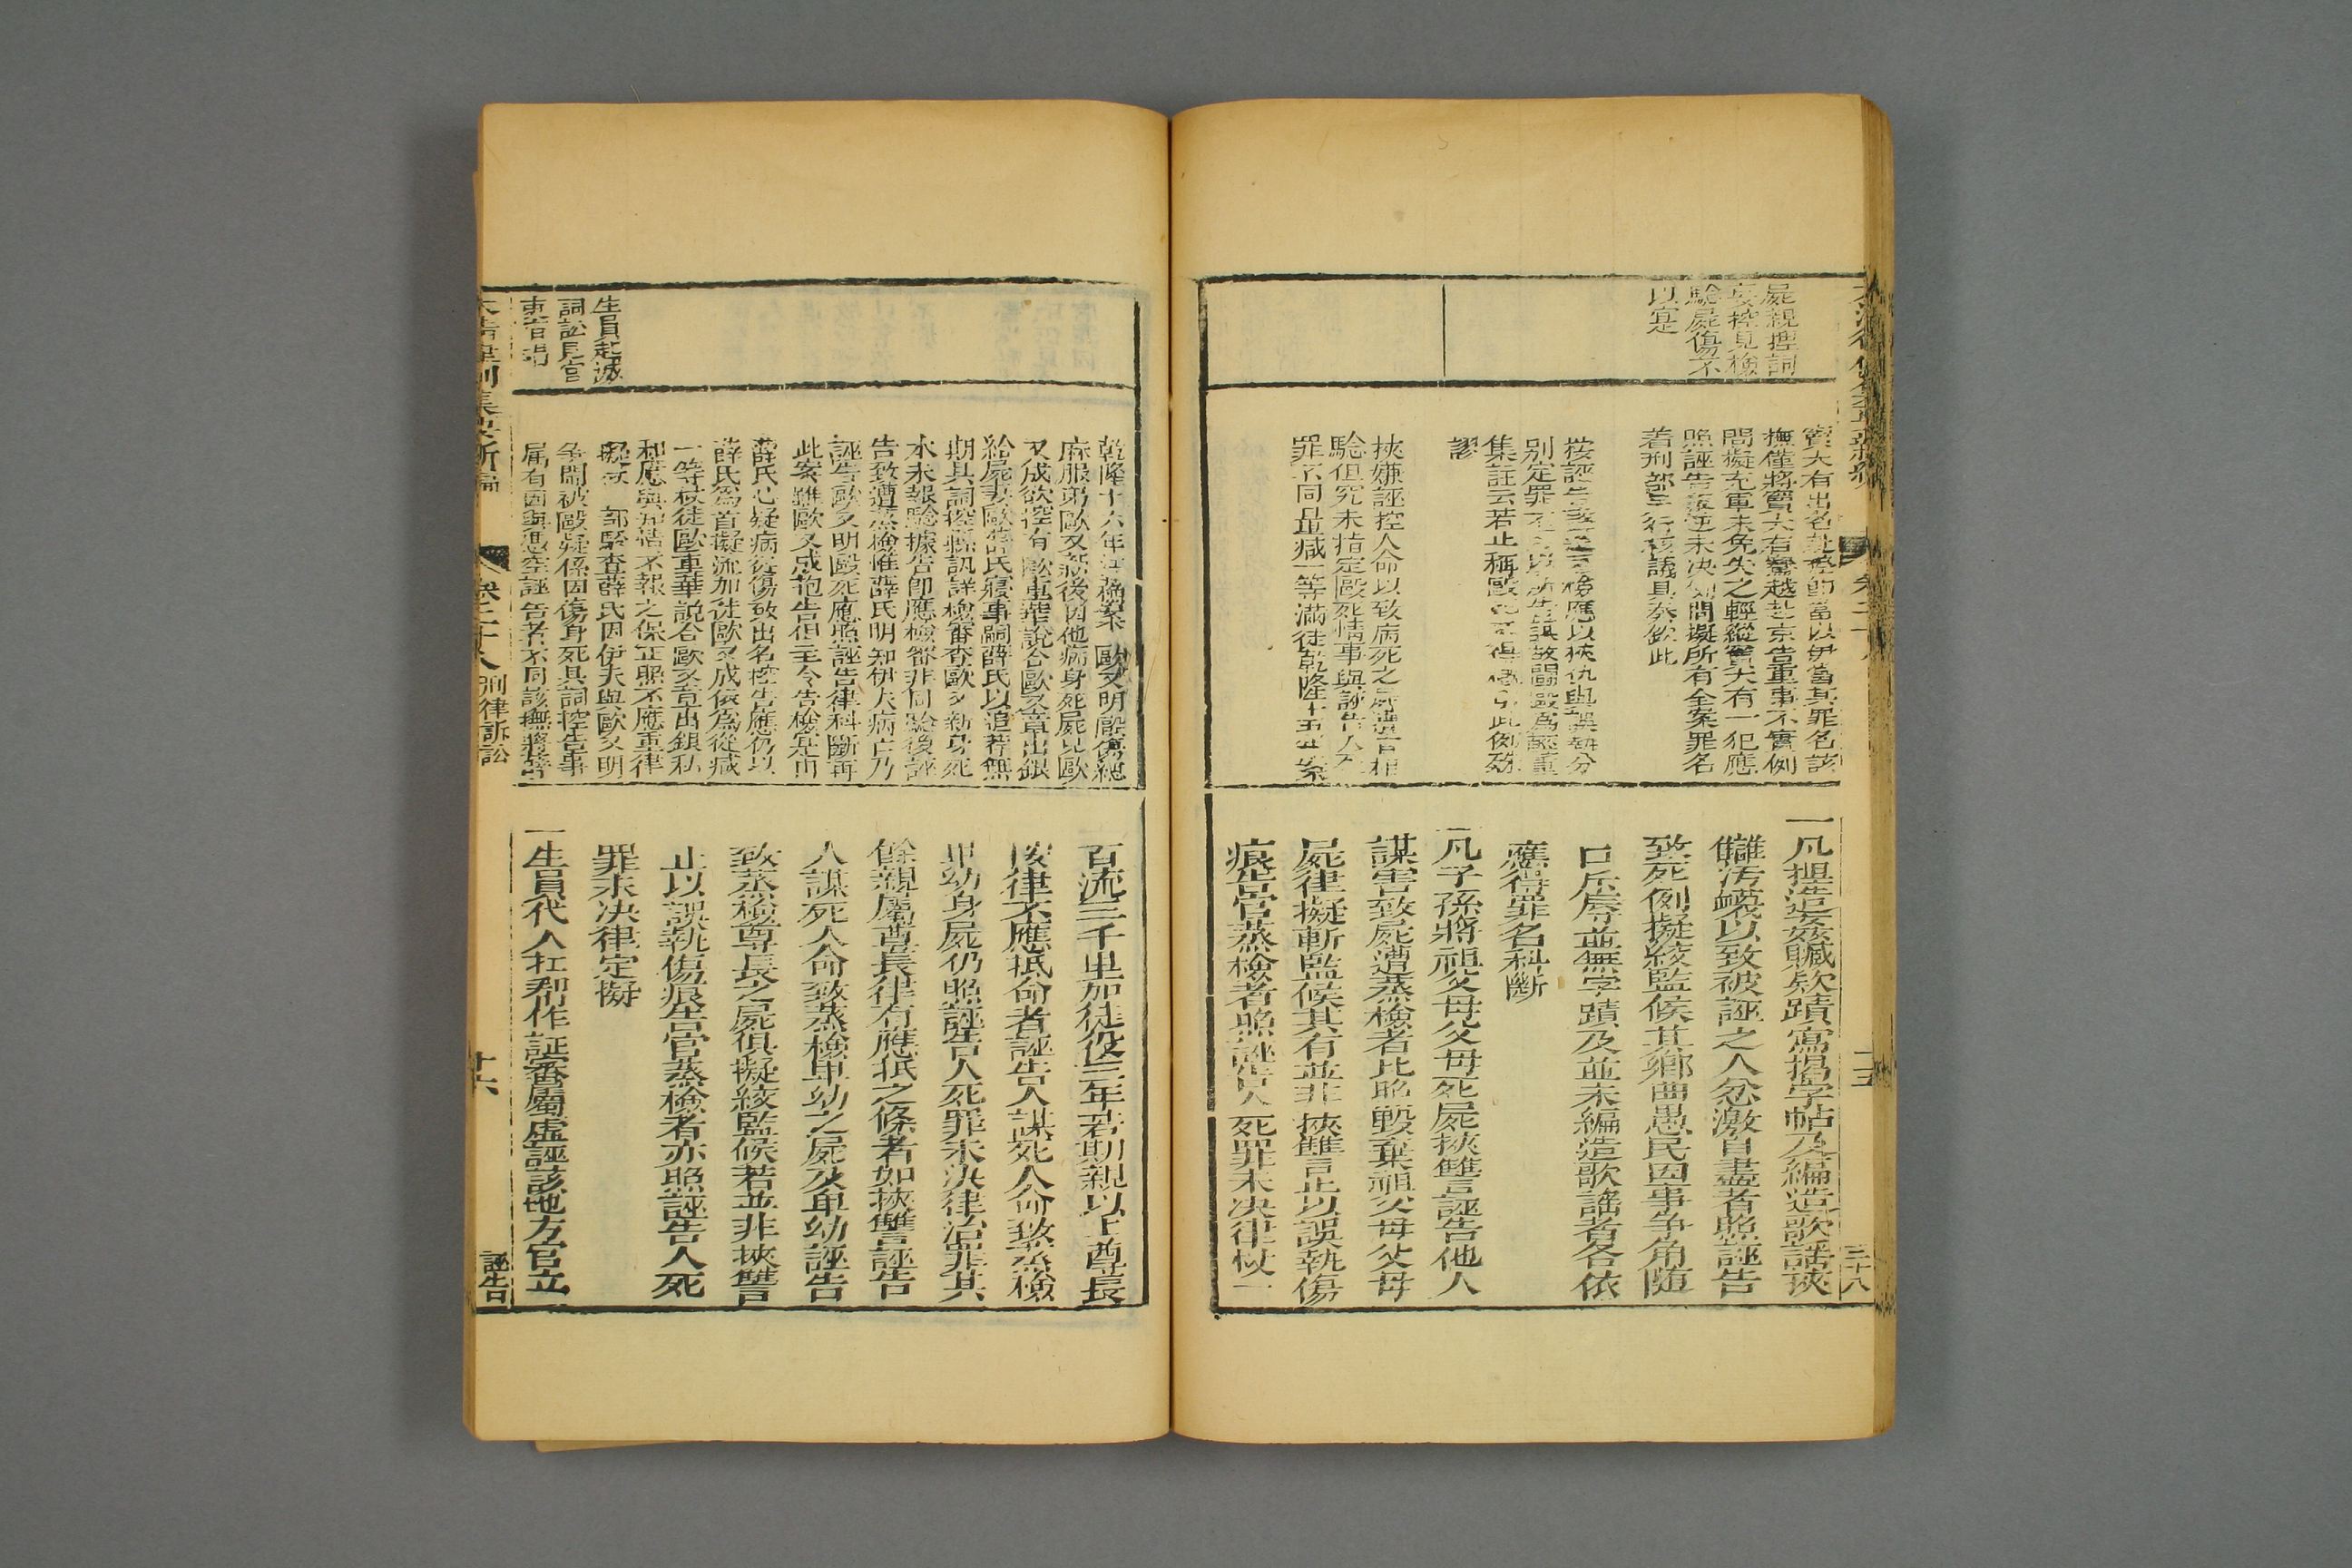 屍親捏詞
妄控見檢
驗屍傷不
以實
竇大有出名
撫僅將竇大有
間擬充軍未免失之輕縱竇大有一犯應
照誣告叛逆未決例問擬所有全案罪名
着刑部另行核議具奏欽此
別定罪
集註云若止稱毆
謬
挾嫌誣控人命以致病死之屍遭
驗但究未指定毆死情事與誣告人
罪不同量減一等滿徒乾隆十五年案
一凡捏造姦贓款蹟寫揭字帖及編造歌謠挾
讎污衊以致被誣之人忿激自盡者照誣告
致死例擬絞監候其鄉曲愚民因事爭角隨
口斥辱並無字蹟及並未編造歌謠者各依
應得罪名科斷
一凡子孫將祖父母父母死屍挾讐誣告他人
謀害致屍遭蒸檢者比照毀棄祖父母父母
屍律擬斬監候其有並非挾讐止以誤執傷
痕告官蒸檢者照誣告人死罪未決律杖一
乾隆十六年 案 歐又明毆傷緦
麻服弟歐又新後因他病身死屍兄歐
又成欲控有歐重華說合歐又章出銀
給屍妻歐薛氏寢事嗣薛氏以追荐無
期具詞控縣訊詳檢審查歐又新身死
本未報驗據告即應檢審非同驗後誣
告致遭蒸檢惟薛氏明知伊夫病亡乃
誣告歐又明毆死應照誣告律科斷再
此案雖歐又成抱告但主令告檢實由
薛氏心疑病從傷致出名控告應仍以
薛氏爲首擬流加徒歐又成依爲從減
一等杖徒歐重華說合歐又章出銀私
和應與知情不報之保正照不應重律
擬杖 部駁查薛氏因伊夫與歐又明
爭鬧被毆疑係因傷身死具詞控告事
屬有因與憑空誣告者不同該撫將薛
百流三千里加徒役三年若期親以上尊長
按律不應抵命者誣告人謀死人命致蒸檢
卑幼身屍仍照誣告人死罪未決律治罪其
餘親屬尊長律有應抵之條者如挾讐誣告
人謀死人命致蒸檢卑幼之屍及卑幼誣告
致蒸檢尊長之屍俱擬絞監候若並非挾讐
止以誤執傷痕告官蒸檢者亦照誣告人死
罪未決律定擬
生員起滅
詞訟見官
吏宿娼
一生員代人扛幫作証審屬虛誣該地方官立
卷二十八 刑律訴訟
十六
誣告